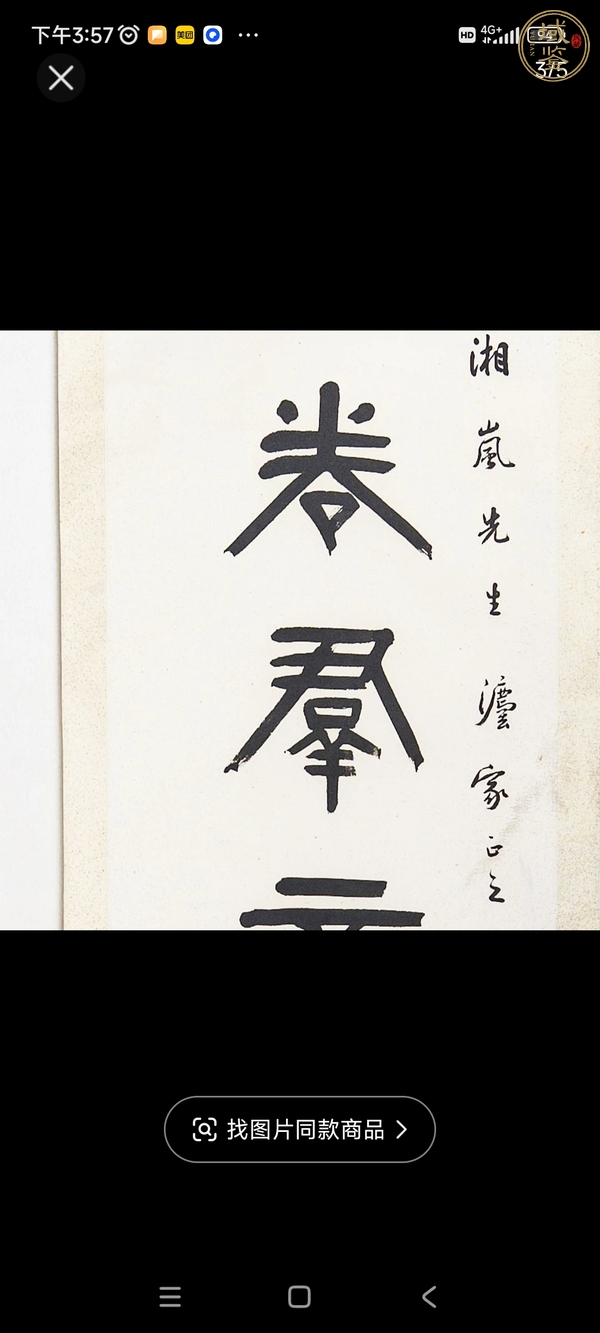 下午3:57
美团
HD 4G+ 94
3/5
湘嵐先生瀘家正之
卷羣
找图片同款商品